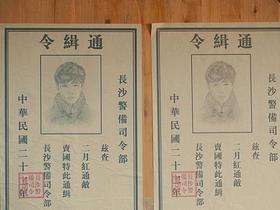 通緝令
長沙警備司令部
茲查
二月紅通敵
賣國特此通緝
長沙警備司令部
中華民國二十年
通緝令
長沙警備司令部
茲查
二月紅通敵
賣國特此通緝
長沙警備司令部
中華民國二十年